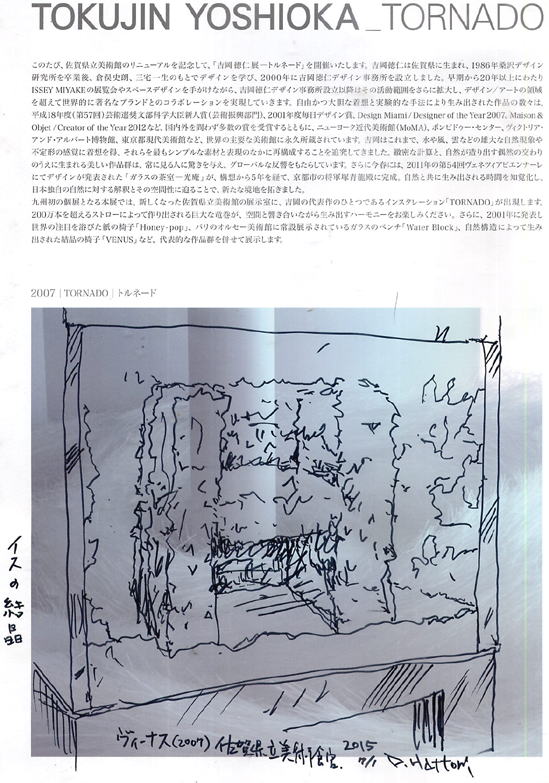 TOKUJIN YOSHIOKA_TORNADO
このたび、佐賀県立美術館のリニューアルを記念して、「吉岡徳仁展ートルネード」を開催いたします。吉岡徳仁は佐賀県に生まれ、1986年桑沢デザイン
研究所を卒業後、倉俣史朗、三宅一生のもとでデザインを学び、2000年に吉岡徳仁デザイン事務所を設立しました。早期から20年以上にわたり
ISSEY MIYAKEの展覧会やスペースデザインを手がけながら、吉岡徳仁デザイン事務所設立以降はその活動範囲をさらに拡大し、デザイン/アートの領域
を超えて世界的に著名なブランドとのコラボレーションを実現していきます。自由かつ大胆な着想と実験的な手法により生み出された作品の数々は、
平成18年度(第57回)芸術選奨文部科学大臣新人賞(芸術振興部門)、2001年度毎日デザイン賞、Design Miami / Designer of the Year 2007、Maison &
Objet / Creator of the Year 2012など、国内外を問わず多数の賞を受賞するとともに、ニューヨーク近代美術館(MoMA)、ポンピドゥー・センター、ヴィクトリア・
アンド・アルバート博物館、東京都現代美術館など、世界の主要な美術館に永久所蔵されています。吉岡はこれまで、水や風、雲などの雄大な自然現象や
不定形の感覚に着想を得、それらを最もシンプルな素材と表現のなかに再構成することを追究してきました。緻密な計算と、自然が造り出す偶然の交わり
のうえに生まれる美しい作品群は、常に見る人に驚きを与え、グローバルな反響をもたらしています。さらに今春には、2011年の第54回ヴェネツィアビエンナーレ
にてデザインが発表された「ガラスの茶室ー光庵」が、構想から5年を経て、京都市の将軍塚青龍殿に完成。自然と共に生み出される時間を知覚化し、
日本独自の自然に対する解釈とその空間性に迫ることで、新たな境地を拓きました。
九州初の個展となる本展では、新しくなった佐賀県立美術館の展示室に、吉岡の代表作のひとつであるインスタレーション「TORNADO」が出現します。
200万本を超えるストローによって作り出される巨大な竜巻が、空間と響き合いながら生み出すハーモニーをお楽しみください。さらに、2001年に発表し
世界の注目を浴びた紙の椅子「Honey-pop」、パリのオルセー美術館に常設展示されているガラスのベンチ「Water Block」、自然構造によって生み
出された結晶の椅子「VENUS」など、代表的な作品群を併せて展示します。
2007 | TORNADO | トルネード
イスの結晶
ヴィーナス(2007) 佐賀県立美術館 2015 7/1 D.Hattori